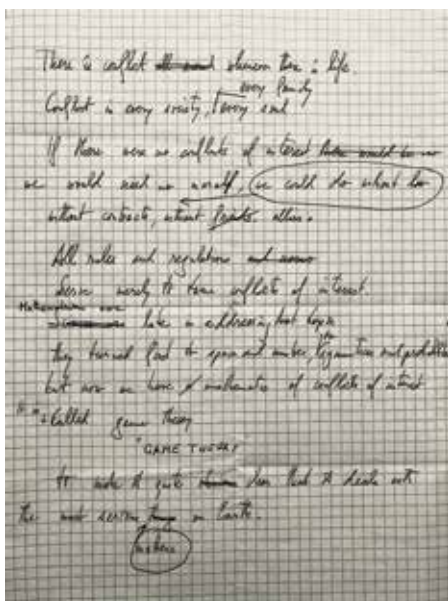 There is conflict wherever there is life.
every family
Conflict in every society, every soul
If there were no conflicts of interest there would be no
we would need no morals, we could do without law
without contracts, without
All rules and regulations
Serve merely to tame conflicts of interest.
Mathematicians were
late in addressing
they turned first to space and number,
but now we have mathematics of conflicts of interest
called game theory
"GAME THEORY
to make it quite clear that it deals with
the most serious on Earth.